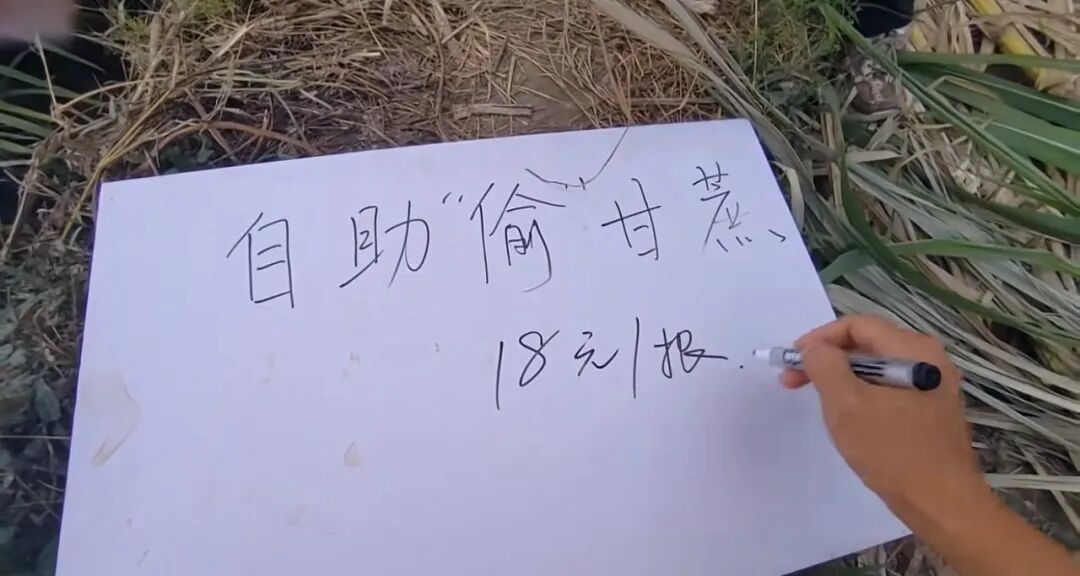 自助“偷”甘蔗
18元/根.